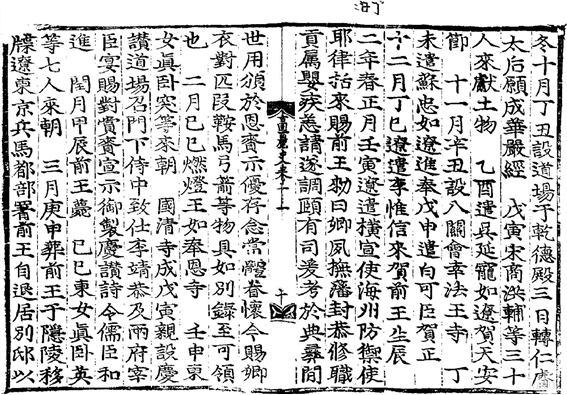 冬十月丁丑設道場于乾德殿三日轉仁睿
太后願成華嚴經 戊寅宋商洪輔等三十
人來獻土物 乙酉遣吳延寵如遼賀天安
節 十一月辛丑設八關會幸法王寺 丁
未遣蘇忠如遼進奉戊申遣白可臣賀正
十二月丁巳遼遣李惟信來賀前王生辰
二年春正月壬寅遼遣橫宣使海州防禦使
耶律括來賜前王勑曰卿夙撫藩封恭修職
貢屬嬰疾恙請遂調頤有司爰考於典彝閒
高麗史卷十一 十
世用頒於恩賚示優存念當體眷懷今賜卿
衣對匹段鞍馬弓箭等物具如別錄至可領
也 二月己巳燃燈王如奉恩寺 壬申東
女眞臥突等來朝 國清寺成戊寅親設慶
讃道場召門下侍中致仕李靖恭及兩府宰
臣宴賜對賞賚宣示御製慶讃詩令儒臣和
進 閏月甲辰前王薨 己巳東女眞臥英
等七人來朝 三月庚申葬前王于隱陵移
牒遼東京兵馬都部署前王自退居別邸以